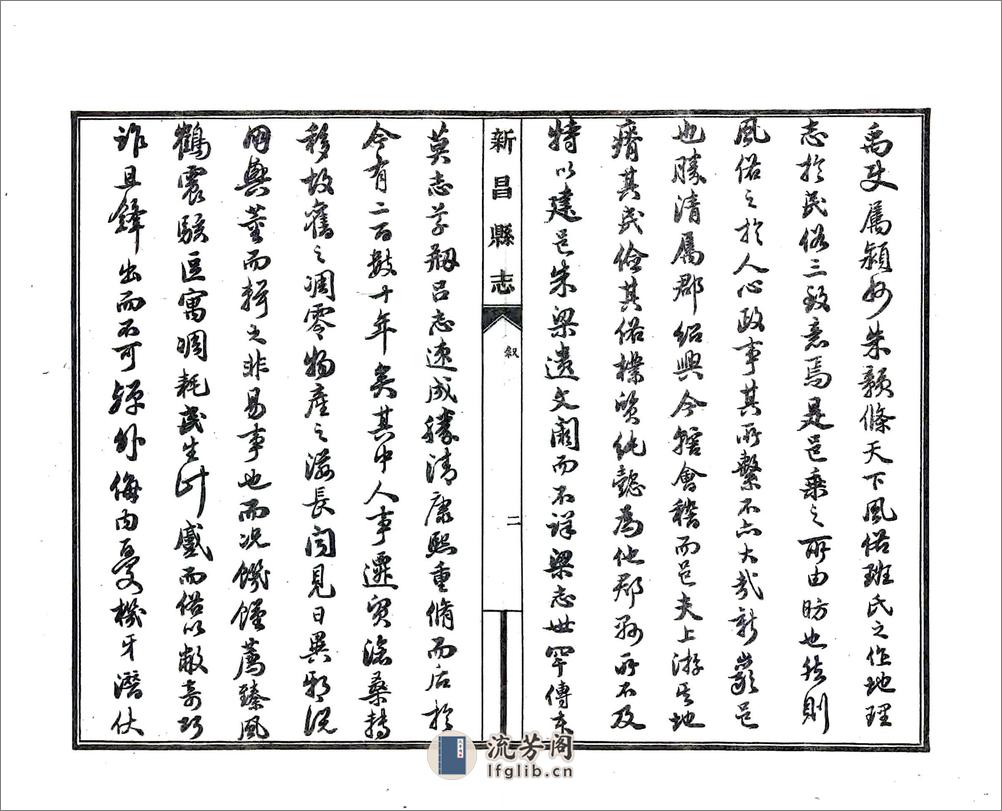 禹使屬潁如朱額條天下風俗班氏之作地理
志於民俗三致意焉是邑乘之所由昉也然則
風俗之於人心政事其所繫不亦大哉新巖邑
也勝清屬郡紹興今轄會稽而邑夫上游其地
瘠其民儉其俗樸質純慤為他郡縣所不及
特以建邑朱梁遺文闕而不詳梁志世罕傳本
新昌縣志
敘
二
莫志草刱呂志速成勝清康熙重脩而后於
今有二百數十年矣其中人事遷貿滄桑轉
移故舊之凋零物產之滋長聞見日異邪說
用興薈而輯之非易事也而況饑饉薦臻風
鶴震駭區寓凋耗民生計蹙而俗以敝奇巧
詐且鋒出而不可殫外侮內憂機牙潛伏
流芳閣
lfglib.cn